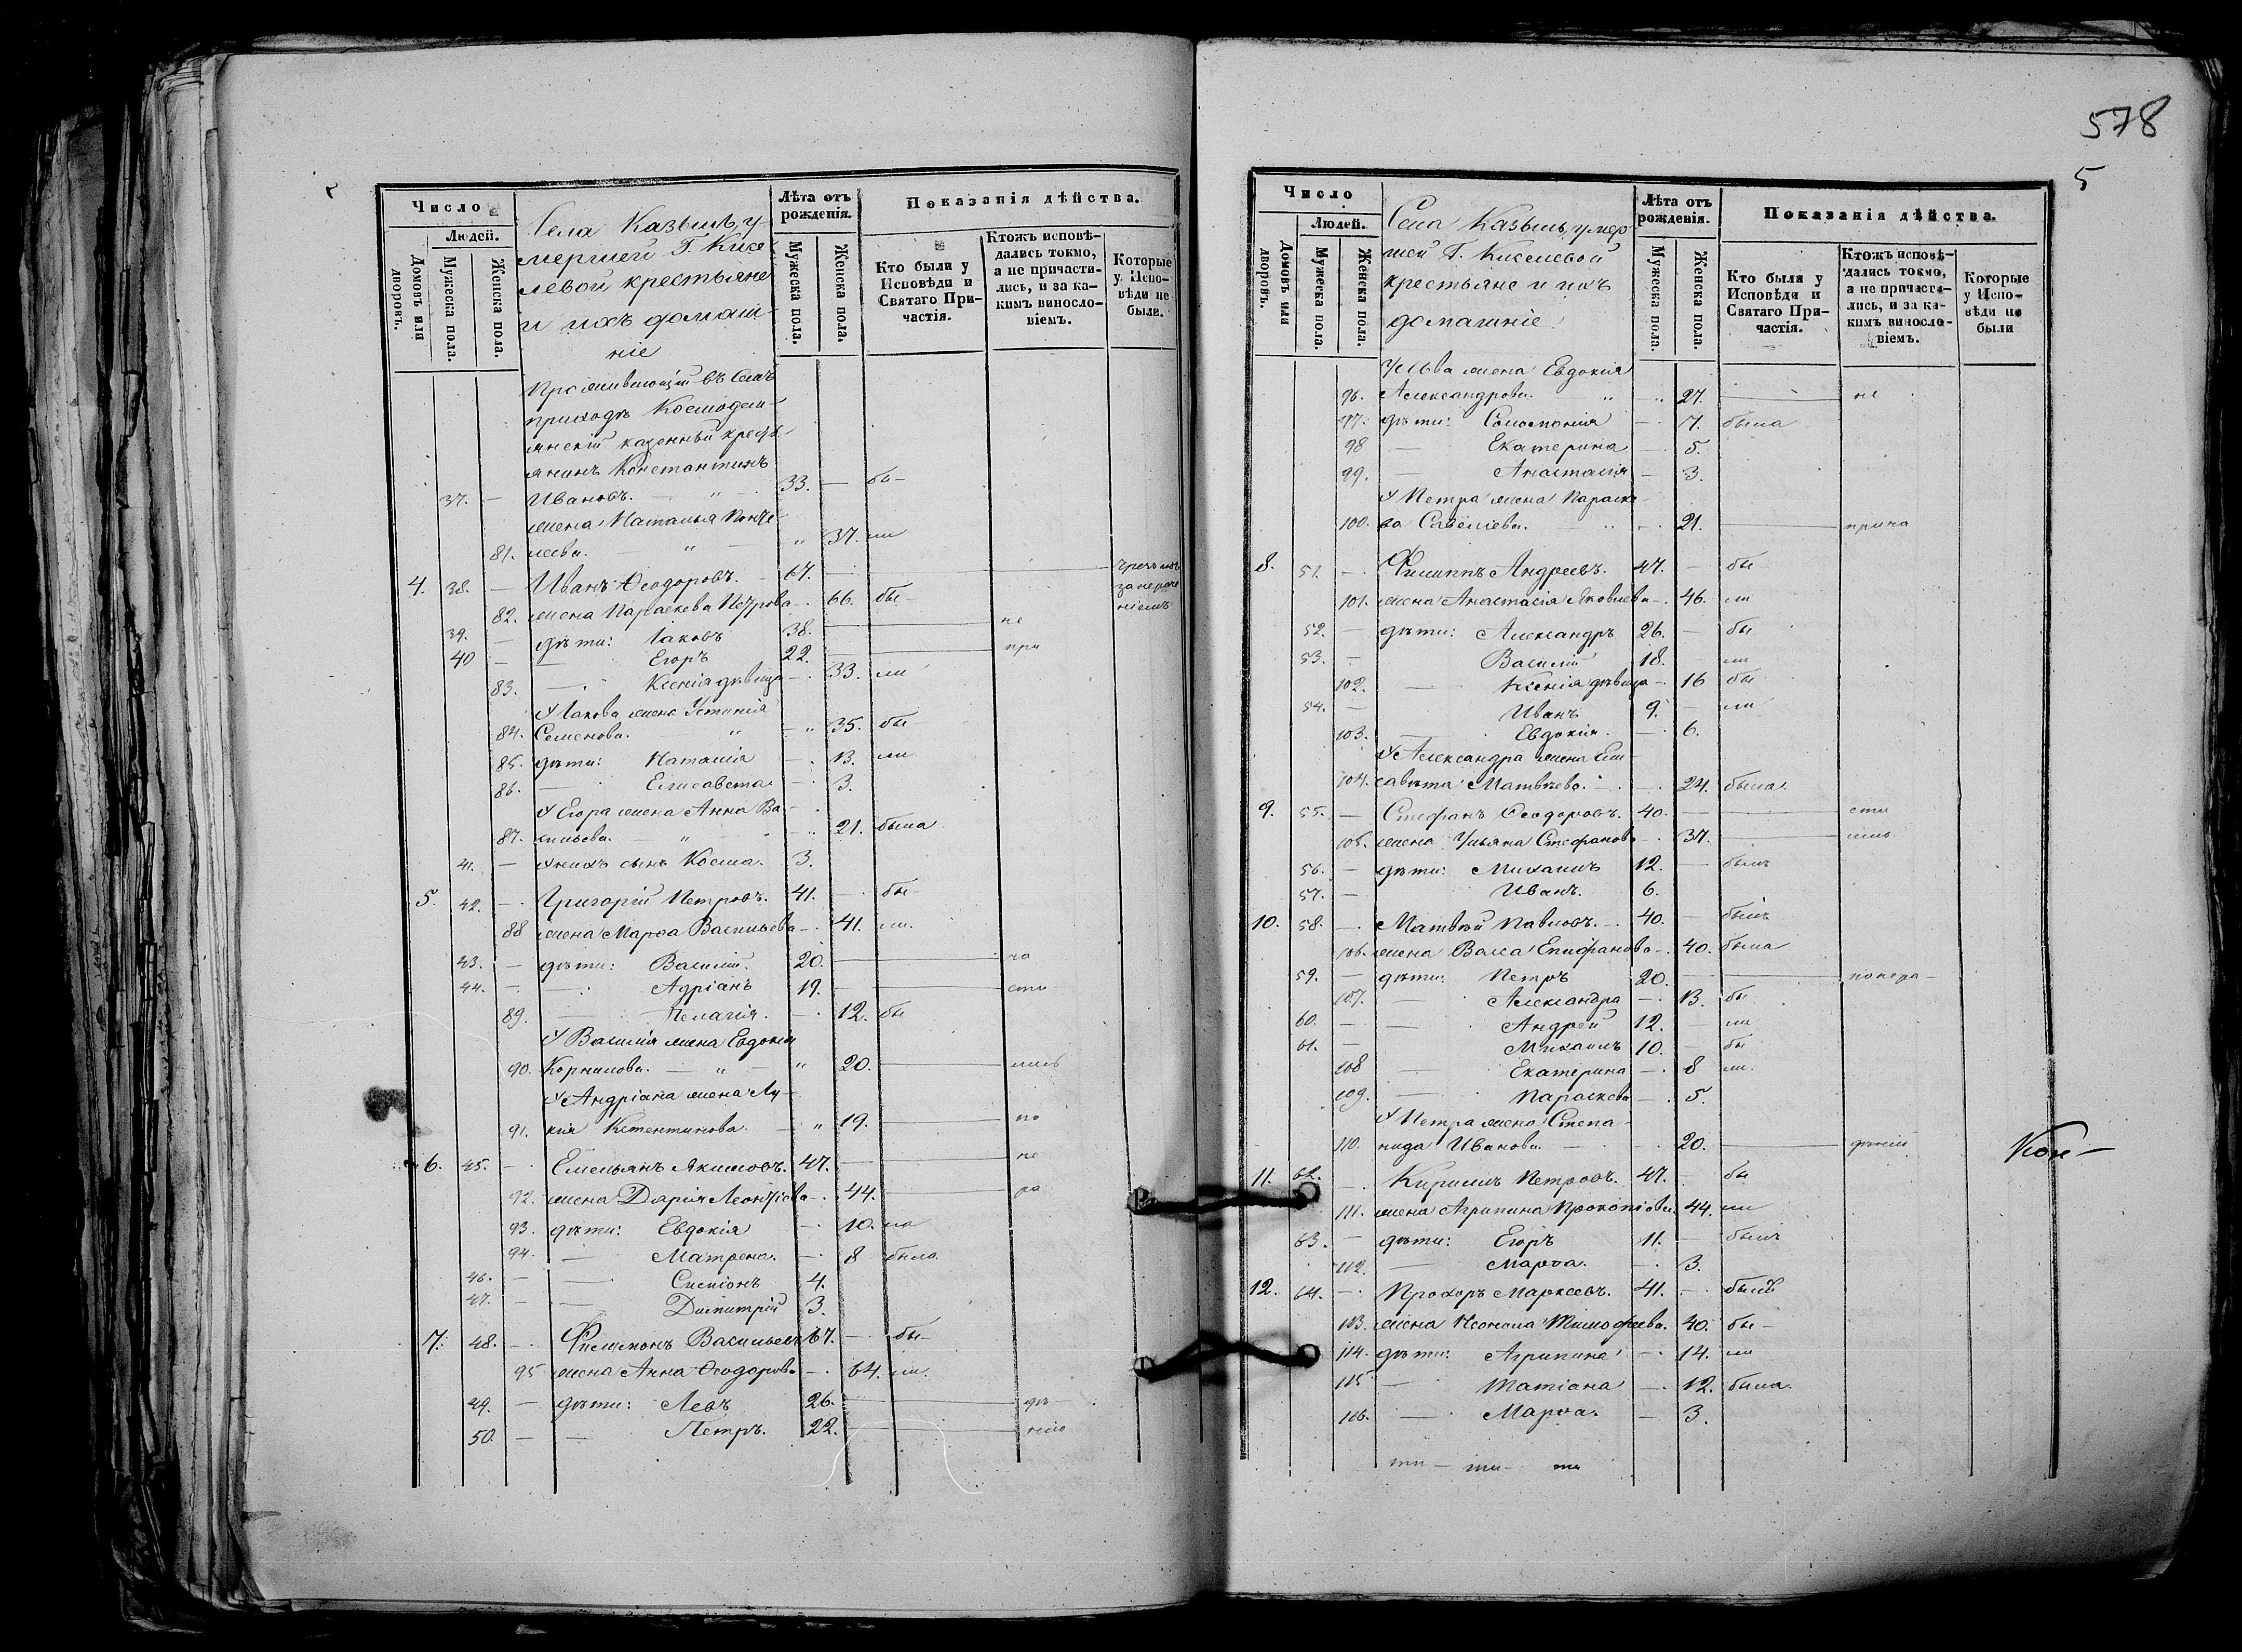 578
5
Число
Людей.
Домовъ или дворовъ.
Мужеска пола.
Женска пола.
Села Казыль, у-
мершей Г. Кисе
левой крестьяне
и ихъ домаш-
ніе
Лѣта отъ рожденія.
Мужеска пола.
Женска пола.
Показанія дѣйства.
Кто были у Исповѣди и Святаго При-частія.
Ктожъ исповѣ-дались токмо, а не причасти-лись, и за ка-кимъ винosло-віемъ.
Которые у Испо-вѣди не были.
Проживающій въ семъ
приходѣ Космодем-
янскій казенный кресть-
янинъ Константинъ
37. — Ивановъ. — " — 33. — бы-
жена Наталья
81. — " — " 37. ли
4. 38. — Иванъ Ѳеодоровъ. — 67. —
82. жена Параскева Петрова — 66. бы-
39. — дѣти: Іаковъ 38. — не
40 — — Егоръ 22. — при
83. — Ксенія дѣвица — 33. ли
У Іакова жена Устинія
84. Семенова. " — " 35. бы-
85. дѣти: Наталія — 13. ли
86. — Елисавета — 3.
У Егора жена Анна Ва-
87. сильева. — " — " 21. была
41. — У нихъ сынъ Косма. 3.
5. 42. — Григорій Петровъ. 41. — бы-
88 жена Марѳа Васильева — 41. ли.
43. — дѣти: Василій. 20. — ча
44. — — Адріанъ 19. — сти
89. — Пелагія. — 12. бы
У Василія жена Евдокія
90. Корнилова. — " — " 20. — лись
У Андріана жена Лу-
91. кія Кстентинова. — " 19. — по
6. 45. — Емельянъ Якимовъ. 47. — не
92. жена Дарія Леонтіева — 44. — ра
93. дѣти: Евдокія — 10. ла
94. — Матрона. — 8 была
46. — — 4.
47. — — Димитрій 3.
7. 48. — Филимонъ Васильевъ 67. — бы-
95 жена Анна Ѳеодорова — 64. ли.
49. — дѣти: Левъ 26. — дѣ-
50. — — Петръ. 22. — нію
Число
Людей.
Домовъ или дворовъ.
Мужеска пола.
Женска пола.
Села Казыль, умер
шей Г. Киселевой
крестьяне и ихъ
домашніе.
Лѣта отъ рожденія.
Мужеска пола.
Женска пола.
Показанія дѣйства.
Кто были у Исповѣди и Святаго При-частія.
Ктожъ исповѣ-дались токмо, а не причаста-лись, и за ка-кимъ винosло-віемъ.
Которые у Испо-вѣди не были
У Льва жена Евдокія
96. Александрова. " " 27. — не
97. дѣти: Соломонія — 7. была
98 — Екатерина — 5.
99. — Анастасія — 3.
У Петра жена Параске
100. ва Савельева. " — 21. — прича
8. 51. — Филиппъ Андреевъ. 47. — бы
101. жена Анастасія Яковлева — 46. ли
52. — дѣти: Александръ 26. — бы
53. — Василій 18. — ли
102. — Ксенія дѣвица — 16 бы
54. — Иванъ 9. — ли
103. — Евдокія. — 6.
У Александра жена Ели-
104. савета Матвѣева. — 24. была.
9. 55. — Стефанъ Ѳеодоровъ. 40. — сти
105. жена Ульяна Стефанова — 37. — лись
56. — дѣти: Михаилъ 12. — былъ
57. — Иванъ. 6.
10. 58. — Матвѣй Павловъ. — 40. — былъ
106. жена Васса Епифанова — 40. была
59. — дѣти: Петръ 20. — понера-
107. — Александра — 13. бы
60. — — Андрей 12. — ли
61. — Михаилъ 10. — бы
108 — Екатерина — 8 ли.
109. — Параскева — 5.
У Петра жена Степа-
110. нида Иванова. — 20. — дѣнію
11. 62. — Кирилъ Петровъ. 47. бы
111. жена Агрипина Прокопіева. 44. ли
63. — дѣти: Егоръ 11. — былъ
112. — Марѳа. — 3.
12. 64. — Прохоръ Маркеевъ. 41. — былъ
113. жена Неонила Тимофеева. 40. бы-
114. дѣти: Агрипина — 14. ли
115 — Татіана — 12. была.
116. — Марѳа. — 3.
Кон-